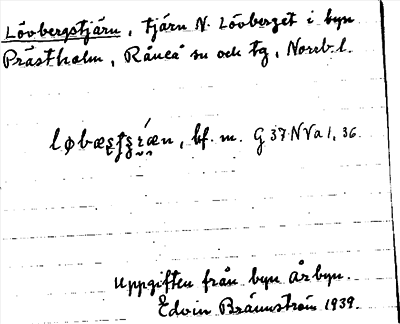 Lövbergstjärn, tjärn N. Lövberget i byn
Prästholm, Råneå sn och tg, Norrb. l.
bf. m. G 37 N V a 1, 36.
Uppgiften från byn Årbyn.
Edvin Brännström 1939.